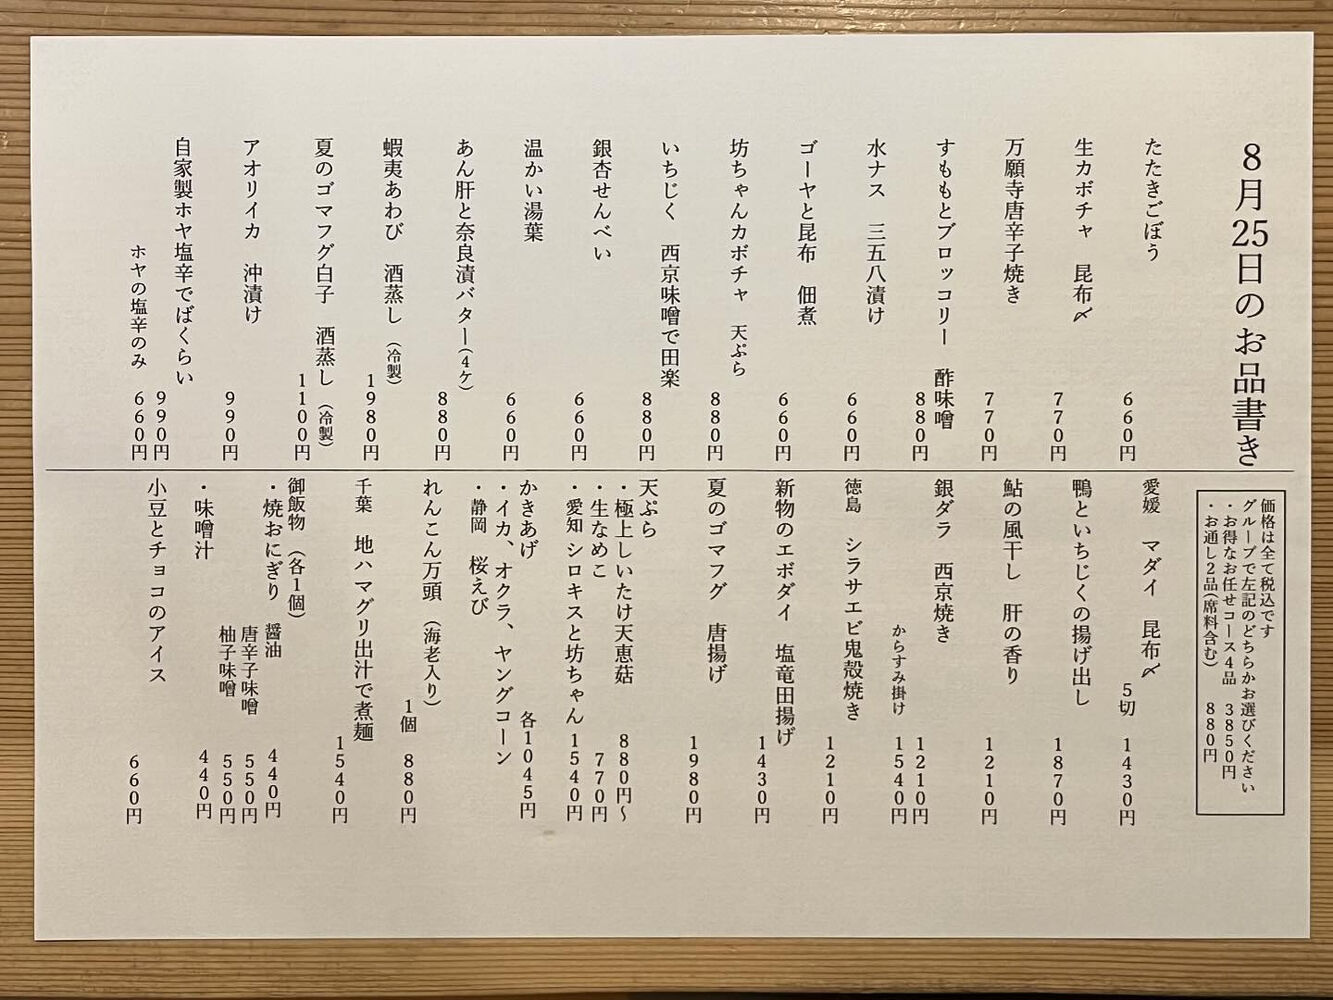 8月25日のお品書き
たたきごぼう 660円
生カボチャ 昆布〆 770円
万願寺唐辛子焼き 770円
すももとブロッコリー 酢味噌 880円
水ナス 三五八漬け 660円
ゴーヤと昆布 佃煮 660円
坊ちゃんカボチャ 天ぷら 880円
いちじく 西京味噌で田楽 880円
銀杏せんべい 660円
温かい湯葉 660円
あん肝と奈良漬バター(4ケ) 880円
蝦夷あわび 酒蒸し (冷製) 1980円
夏のゴマフグ白子 酒蒸し (冷製) 1100円
アオリイカ 沖漬け 990円
自家製ホヤ塩辛でばくらい 990円
ホヤの塩辛のみ 660円
価格は全て税込です
グループで左記のどちらかお選びください
・お得なお任せコース4品 3850円
・お通し2品(席料含む) 880円
愛媛 マダイ 昆布〆 5切 1430円
鴨といちじくの揚げ出し 1870円
鮎の風干し 肝の香り 1210円
銀ダラ 西京焼き 1210円
からすみ掛け 1540円
徳島 シラサエビ鬼殻焼き 1210円
新物のエボダイ 塩竜田揚げ 1430円
夏のゴマフグ 唐揚げ 1980円
天ぷら
・極上しいたけ天恵菇 880円~
・生なめこ 770円
・愛知 シロキスと坊ちゃん 1540円
かきあげ 各1045円
・イカ、オクラ、ヤングコーン
・静岡 桜えび
れんこん万頭 (海老入り) 1個 880円
千葉 地ハマグリ出汁で煮麺 1540円
御飯物 (各1個)
・焼おにぎり 醤油 440円
唐辛子味噌 550円
柚子味噌 550円
・味噌汁 440円
小豆とチョコのアイス 660円